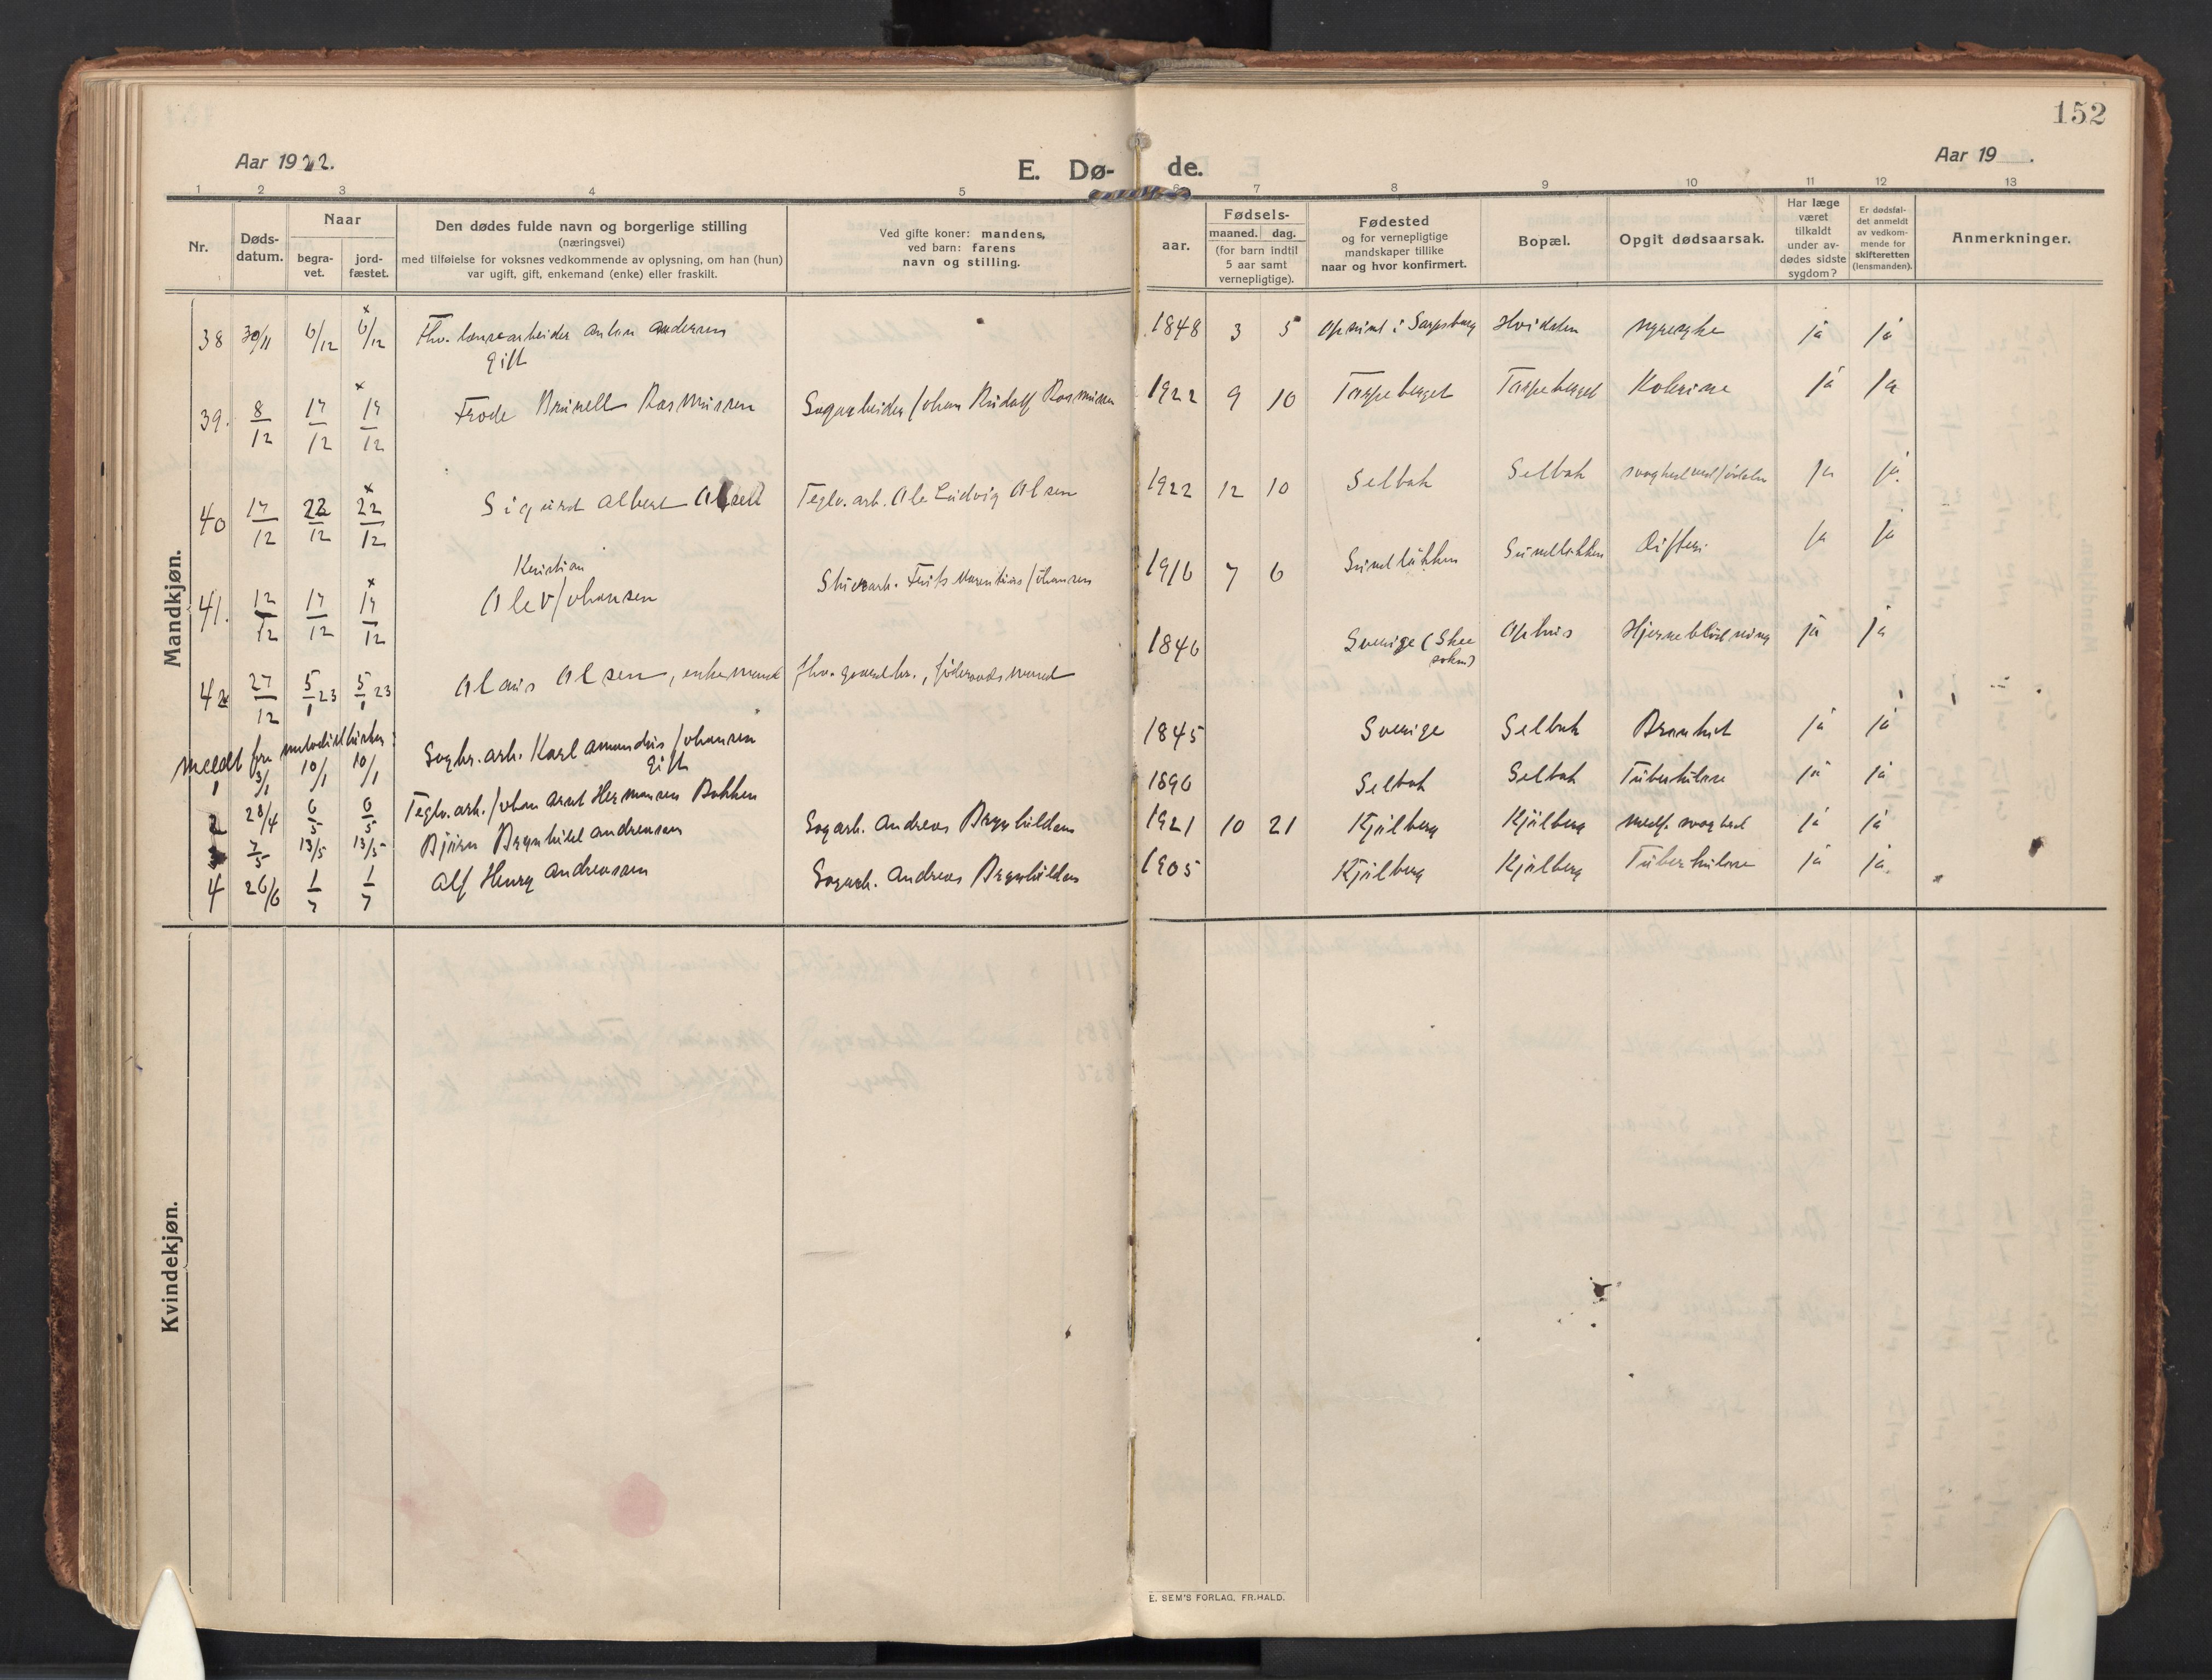 152
Aar 1922.
E. Dø-
de.
Aar 19 .
1 2 3 4 5 6 7 8 9 10 11 12 13
Nr.
Døds-
datum.
Naar
begra-
vet.
jord-
fæstet.
Den dødes fulde navn og borgerlige stilling
(næringsvei)
med tilføielse for voksnes vedkommende av oplysning, om han (hun)
var ugift, gift, enkemand (enke) eller fraskilt.
Ved gifte koner: mandens,
ved barn: farens
navn og stilling.
aar.
Fødsels-
maaned. dag.
(for barn indtil
5 aar samt
vernepligtige).
Fødested
og for vernepligtige
mandskaper tillike
naar og hvor konfirmert.
Bopæl.
Opgit dødsaarsak.
Har læge
været
tilkaldt
under av-
dødes sidste
sygdom?
Er dødsfal-
det anmeldt
av vedkom-
mende for
skifteretten
(lensmanden).
Anmerkninger.
Mandkjøn.
38 30/11 6/12 x 6/12 Fhv. lensearbeider Anton Andersen 1848 3 5 Opsund i Sarpsborg Hvidsten nyresyke ja ja
gift
39. 8/12 17/12 x 17/12 Frode Brunell Rasmussen Sagarbeider Johan Rudolf Rasmussen 1922 9 10 Torpeberget Torpeberget Kolerine ja ja
40 17/12 22/12 x 22/12 Sigurd Albert Olsen Teglv. arb. Ole Ludvig Olsen 1922 12 10 Selbak Selbak svaghed ved fødselen ja ja.
Kristian
41. 12/12 17/12 x 17/12 Olev Johansen Stuerarb. Frits Marentius Johansen 1916 7 6 Sundløkken Sundløkken Difteri ja ja
42 27/12 5/1 23 5/1 23 Olaus Olsen, enkemand fhv. gaardbr., føderaadsmand 1846 Sverige (Skee Ophus Hjerneblødning ja ja
sokn)
Meldt fra metodistkirken:
1 3/1 10/1 10/1 Sagbr. arb. Karl Amandus Johansen 1845 Sverige Selbak Bronkit ja ja
gift
2 28/4 6/5 6/5 Teglv. arb. Johan Arnt Hermansen Bakken 1890 Selbak Selbak Tuberkulose ja ja
3 7/5 13/5 13/5 Bjørn Brynhild Andreassen Sagarb. Andreas Brynhildsen 1921 10 21 Kjølberg Kjølberg medf. svaghed ja ja
4 26/6 1/7 1/7 Alf Henry Andreassen Sagarb. Andreas Brynhildsen 1905 Kjølberg Kjølberg Tuberkulose ja ja.
Kvindekjøn.
E. SEM'S FORLAG, FR.HALD.